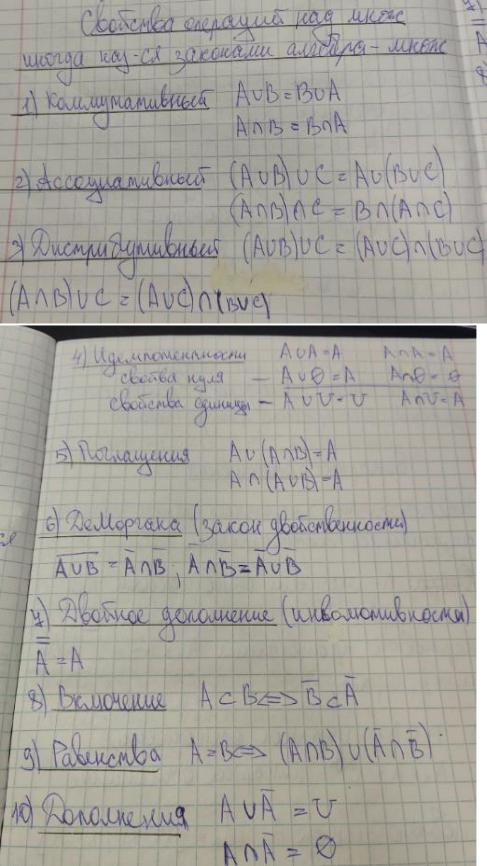 Свойства операций над множ
иногда наз-ся законами алгебра-множ
1) Коммутативный A∪B=B∪A
A∩B=B∩A
2) Ассоциативный (A∪B)∪C=A∪(B∪C)
(A∩B)∩C=B∩(A∩C)
3) Дистрибутивный (A∪B)∪C=(A∪C)∩(B∪C)
(A∩B)∪C=(A∪C)∩(B∪C)
4) Идемпотентности A∪A=A A∩A=A
свойства нуля — A∪∅=A A∩∅=∅
свойства единицы — A∪U=U A∩U=A
5) Поглащения A∪(A∩B)=A
A∩(A∪B)=A
6) ДеМоргана (закон двойственности)
A̅∪̅B̅ = A̅∩B̅, A∩B̅=A̅∪B̅
7) Двойное дополнение (инволютивность)
A̿=A
8) Включение A⊂B⇔B̅⊂A̅
9) Равенства A=B⇔(A∩B)∪(A̅∩B̅)
10) Дополнения A∪A̅=U
A∩A̅=∅